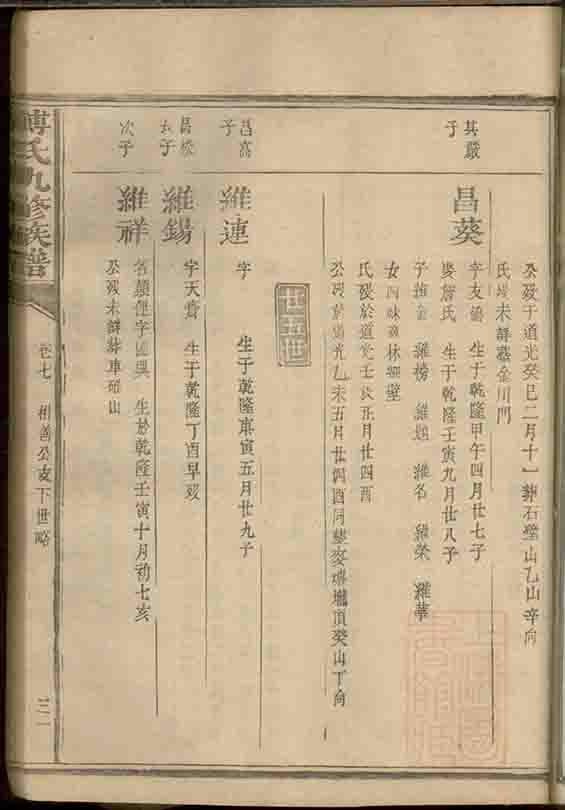 公歿于道光癸巳二月十一葬石壁山乙山辛向
氏歿未詳葬金川門
其嚴
子
昌葵
字友 生于乾隆甲午四月廿七子
娶詹氏 生于乾隆壬寅九月廿八子
子 維榜 維 維名 維榮 維華
女四 林
氏歿於道光壬辰正月廿四酉
公歿於道光乙未五月廿四酉同 頂癸山丁向
廿五世
昌嵩
子
維連
字 生于乾隆庚寅五月廿九子
昌
子
維錫
字天賚 生于乾隆丁酉早歿
次子
維祥
名 字 生於乾隆壬寅十月初七亥
公歿未詳葬車 山
傅氏九修族譜
卷七 相善公支下世略
三二